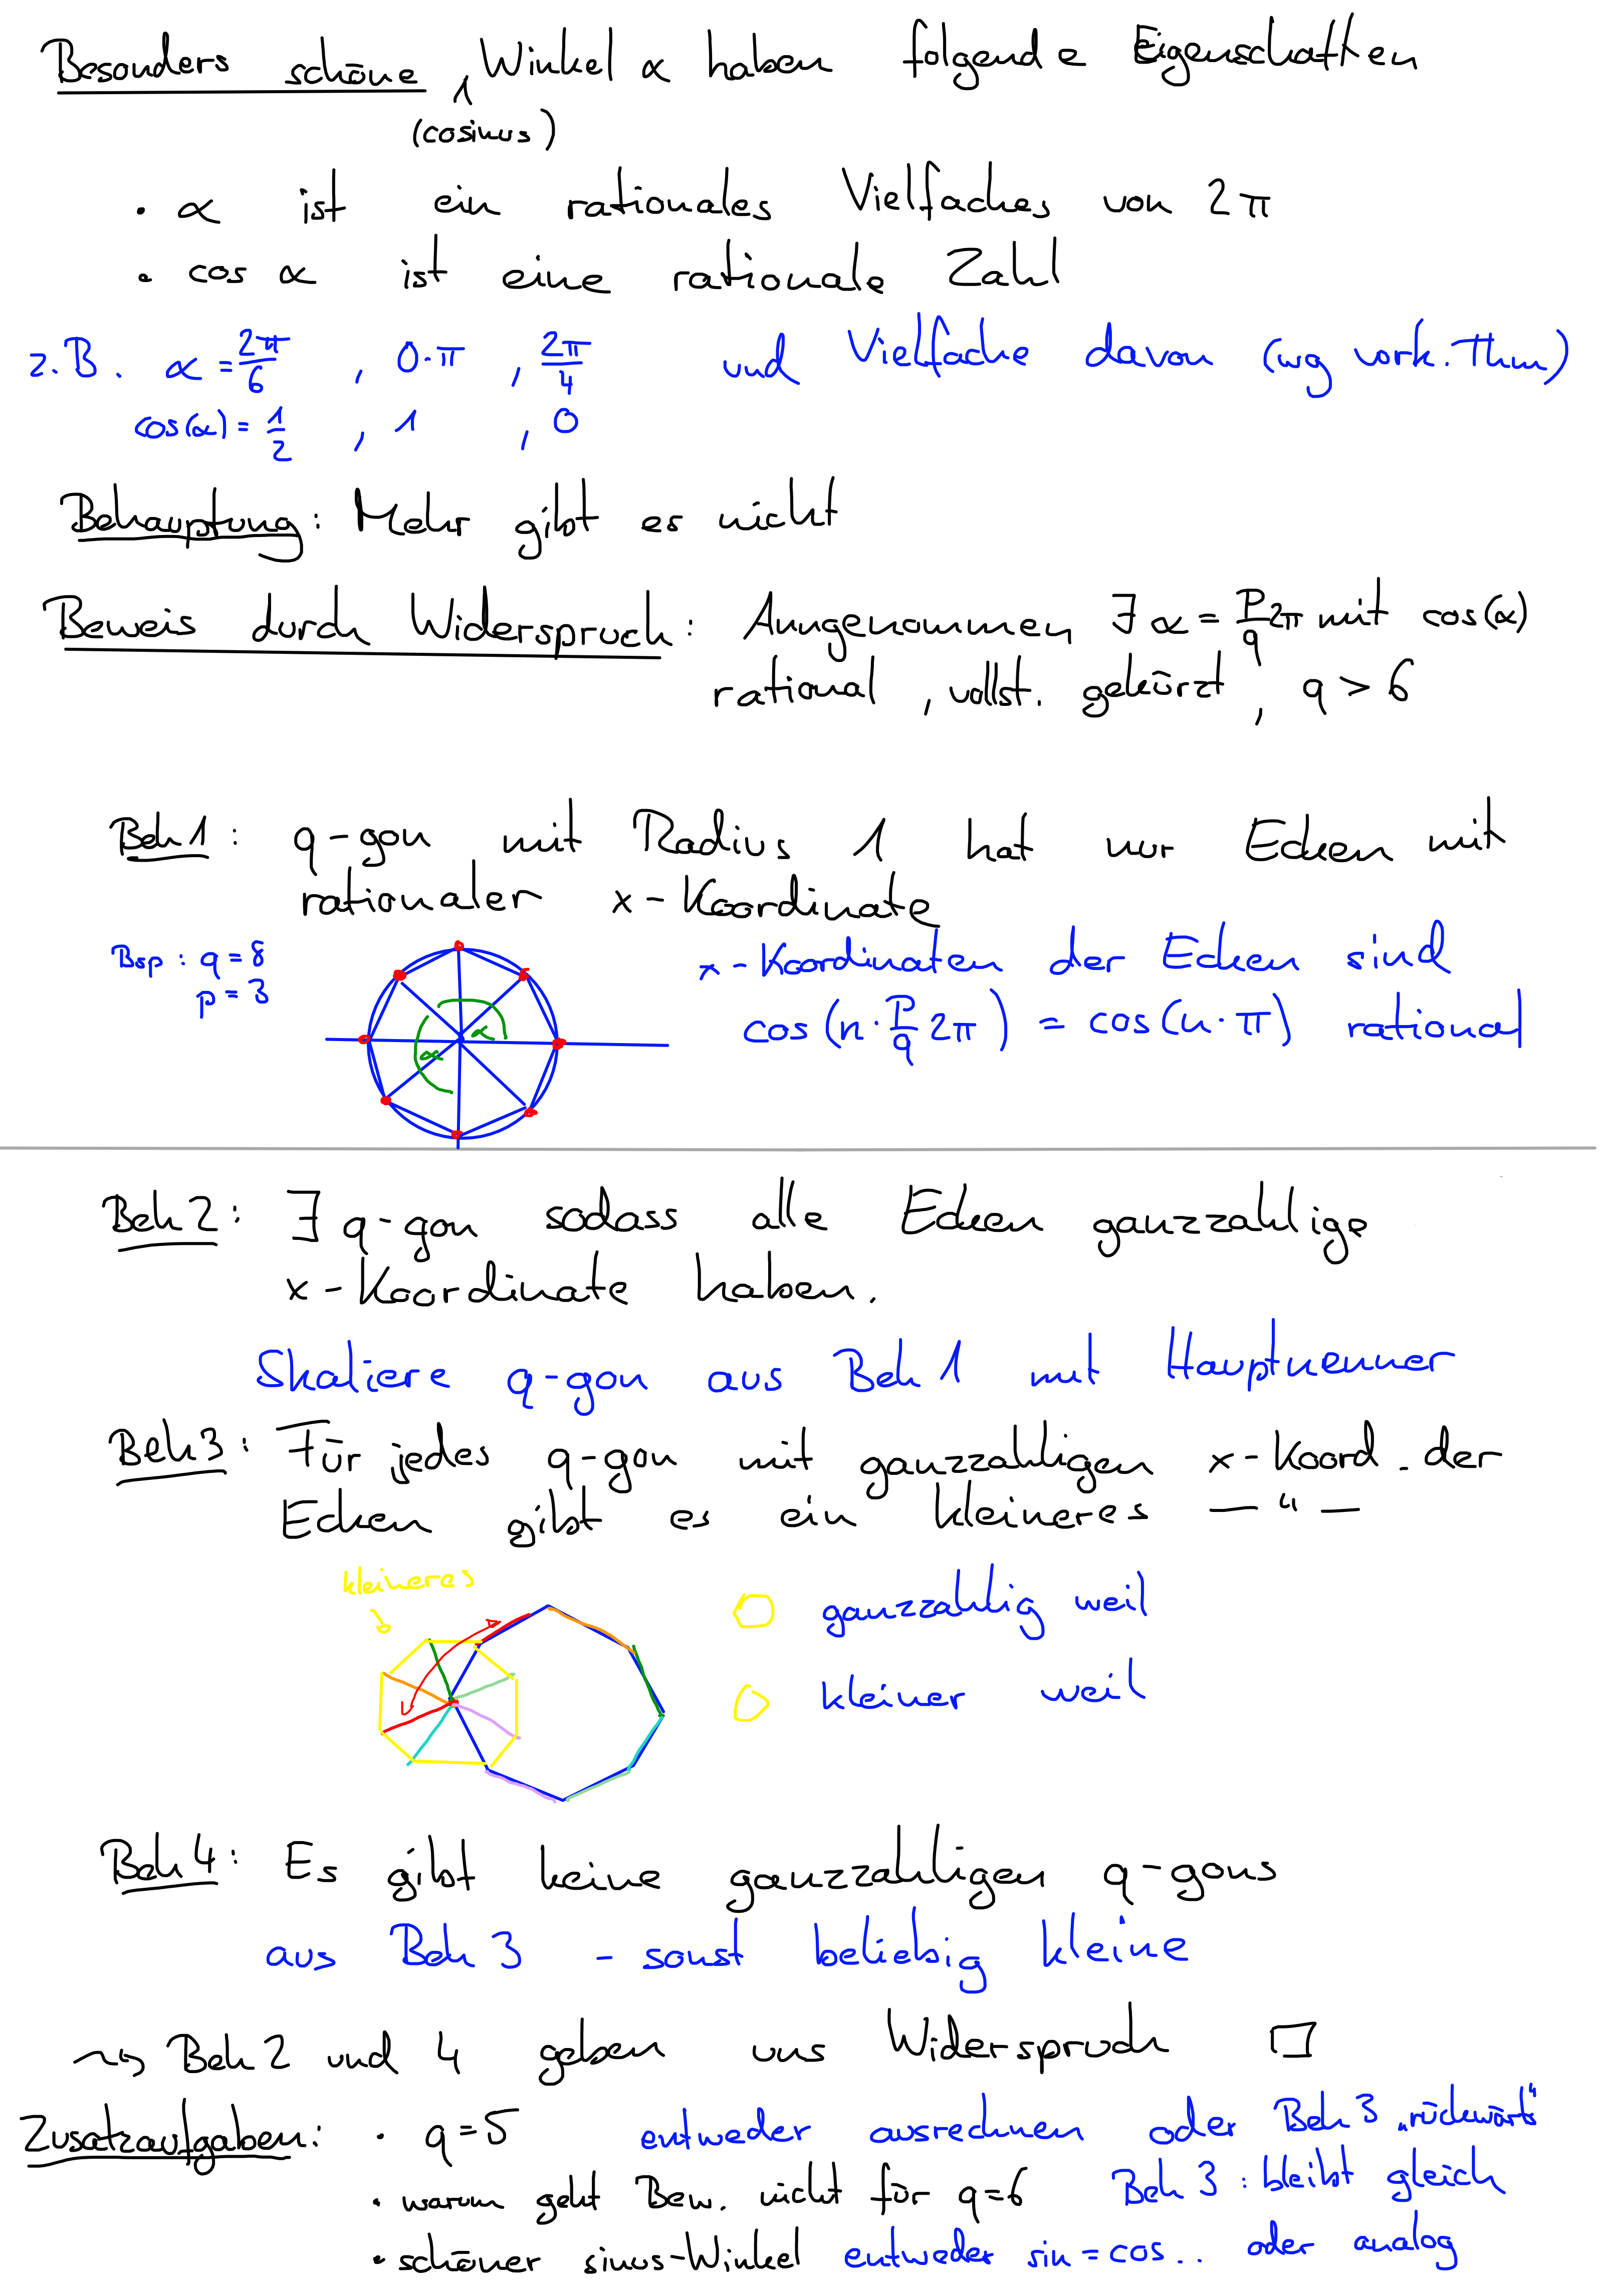 Besonders schöne Winkel α haben folgende Eigenschaften
(cosinus)
· α ist ein rationales Vielfaches von 2π
· cos α ist eine rationale Zahl
z.B. α = 2π/6 , 0·π , 2π/4 und Vielfache davon (wg vork. Thm)
cos(α) = 1/2 , 1 , 0
Behauptung: Mehr gibt es nicht
Beweis durch Widerspruch: Anngenommen ∃ α = p/q 2π mit cos(α)
rational , vollst. gekürzt , q > 6
Beh 1: q-gon mit Radius 1 hat nur Ecken mit
rationaler x-Koordinate
Bsp: q = 8
p = 3
α
α
x-Koordinaten der Ecken sind
cos(n· p/q 2π) = cos(n·π) rational
Beh 2: ∃ q-gon sodass alle Ecken ganzzahlige
x-Koordinate haben.
Skaliere q-gon aus Beh 1 mit Hauptnenner
Beh 3: Für jedes q-gon mit ganzzahligen x-Koord. der
Ecken gibt es ein kleineres —"—
kleineres
ganzzahlig weil
kleiner weil
Beh 4: Es gibt keine ganzzahligen q-gons
aus Beh 3 - sonst beliebig kleine
⇝ Beh 2 und 4 geben uns Widerspruch □
Zusatzaufgaben: · q=5 entweder ausrechnen oder Beh 3 „rückwärts"
· warum geht Bew. nicht für q=6 Beh 3: bleibt gleich
· schöner sinus-Winkel entweder sin = cos.. oder analog